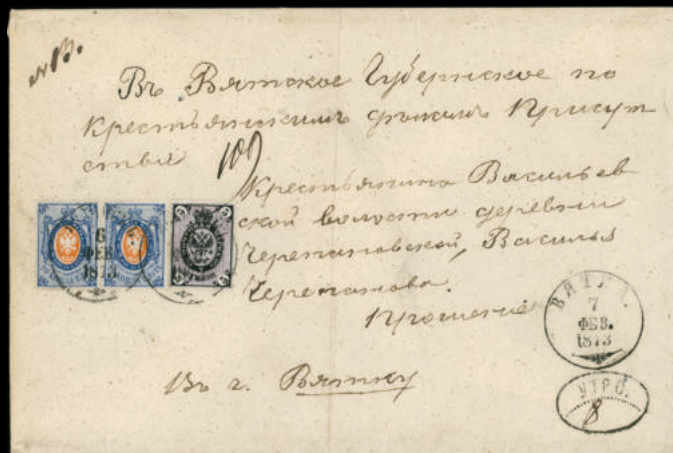 № 13.
Въ Вятское Губернское по
крестьянскимъ дѣламъ Присут
ствіе
100
Крестьянина Васильев
ской волости деревни
Черепановской, Василья
Черепанова.
Прошеніе
Въ г. Вятку
6
ФЕВ.
1873
5 5
ВЯТКА.
7
ФЕВ.
1873
УТРО.
8